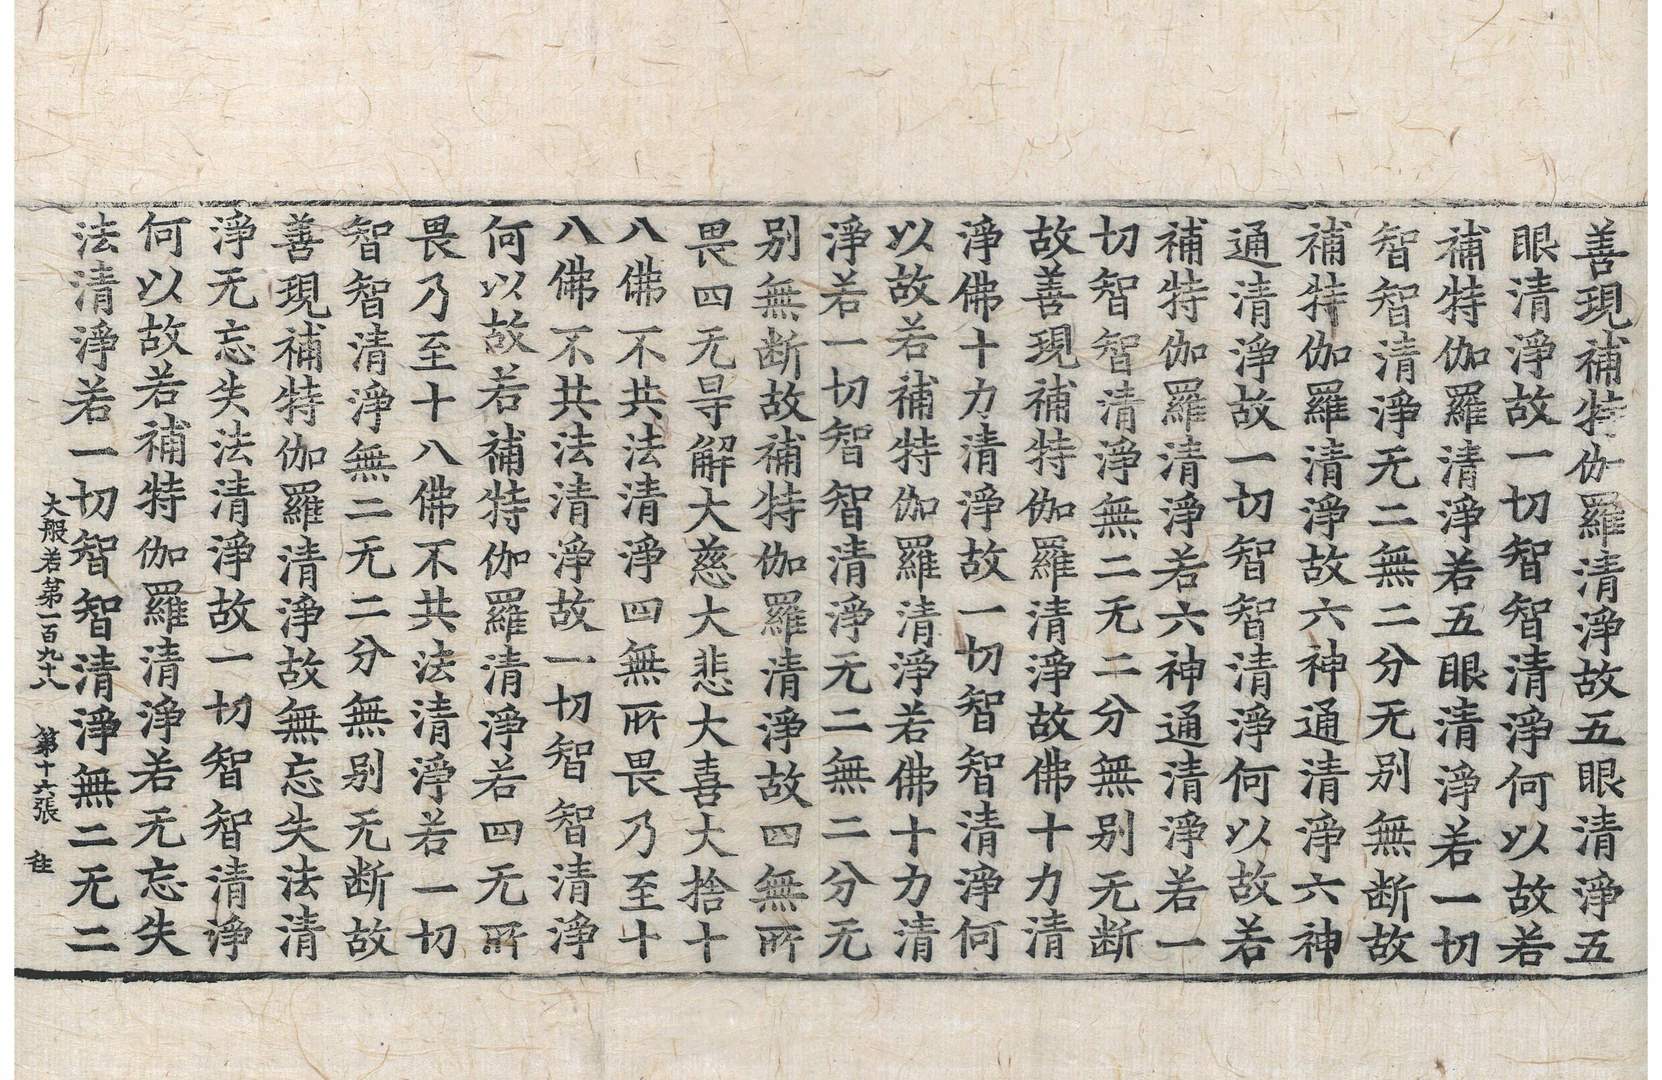 善現補特伽羅清淨故五眼清淨五
眼清淨故一切智智清淨何以故若
補特伽羅清淨若五眼清淨若一切
智智清淨无二無二分无別無断故
補特伽羅清淨故六神通清淨六神
通清淨故一切智智清淨何以故若
補特伽羅清淨若六神通清淨若一
切智智清淨無二无二分無别无断
故善現補特伽羅清淨故佛十力清
淨佛十力清淨故一切智智清淨何
以故若補特伽羅清淨若佛十力清
淨若一切智智清淨无二無二分无
别無断故補特伽羅清淨故四無所
畏四无㝵解大慈大悲大喜大捨十
八佛不共法清淨四無所畏乃至十
八佛不共法清淨故一切智智清淨
何以故若補特伽羅清淨若四无所
畏乃至十八佛不共法清淨若一切
智智清淨無二无二分無别无断故
善現補特伽羅清淨故無忘失法清
淨无忘失法清淨故一切智智清淨
何以故若補特伽羅清淨若无忘失
法清淨若一切智智清淨無二无二
大般若第一百九十八 第十六張